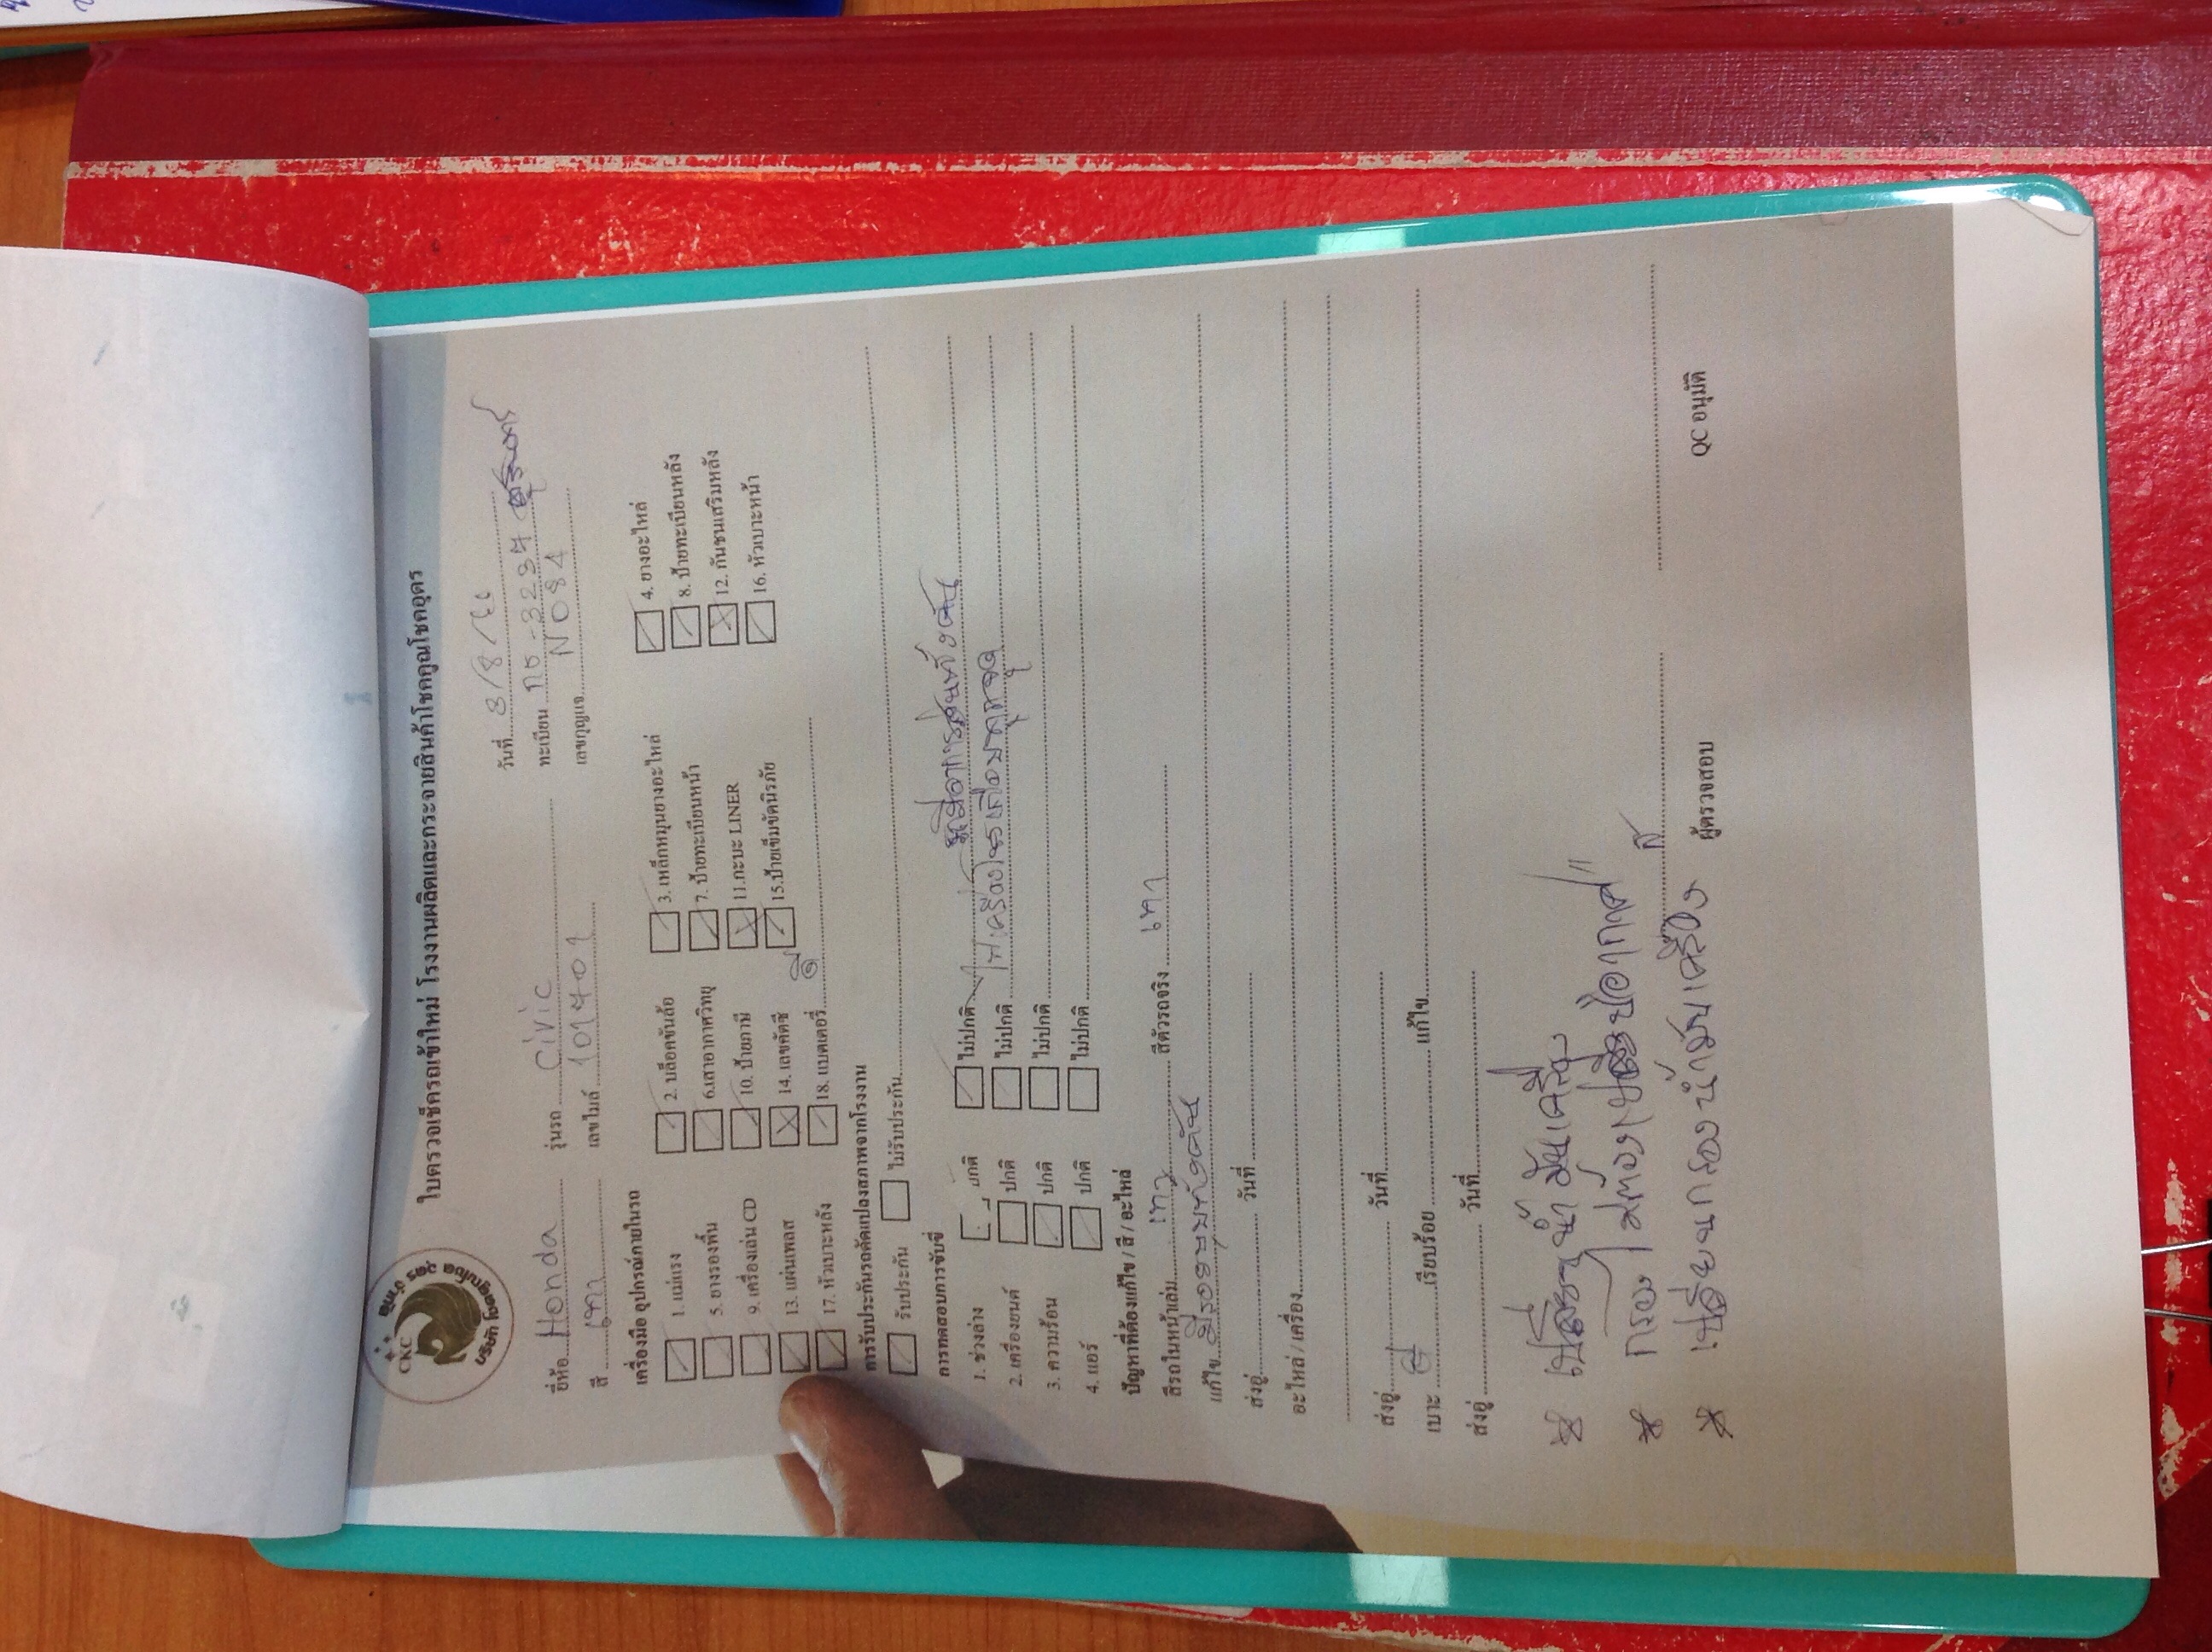 CKC
บริษัท โชคคูณโชค อุดร จำกัด
ใบตรวจเช็ครถเข้าใหม่ โรงงานผลิตและกระจายสินค้าโชคคูณโชคอุดร
วันที่ 3/8/
ยี่ห้อ Honda รุ่นรถ Civic ทะเบียน
สี เทา เลขไมล์ เลขกุญแจ N084
เครื่องมือ อุปกรณ์ภายในรถ
1. แม่แรง 2. บล็อคขันล้อ 3. เหล็กหมุนยางอะไหล่ 4. ยางอะไหล่
5. ยางรองพื้น 6.เสาอากาศวิทยุ 7. ป้ายทะเบียนหน้า 8. ป้ายทะเบียนหลัง
9. เครื่องเล่น CD 10. ป้ายภาษี 11.กะบะ LINER 12. กันชนเสริมหลัง
13. แผ่นเพลส 14. เลขคัดซี 15.ป้ายเข็มขัดนิรภัย 16. หัวเบาะหน้า
17. หัวเบาะหลัง 18. แบตเตอรี่ ดี
การรับประกันรถดัดแปลงสภาพจากโรงงาน
รับประกัน ไม่รับประกัน
การทดสอบการขับขี่
1. ช่วงล่าง ปกติ ไม่ปกติ
2. เครื่องยนต์ ปกติ ไม่ปกติ
3. ความร้อน ปกติ ไม่ปกติ
4. แอร์ ปกติ ไม่ปกติ
ปัญหาที่ต้องแก้ไข / สี / อะไหล่
สีรถในหน้าเล่ม เทา สีตัวรถจริง เทา
แก้ไข มีรอยบุบทั้งคัน
ส่งอู่ วันที่
อะไหล่ / เครื่อง
ส่งอู่ วันที่
เบาะ ดี เรียบร้อย แก้ไข
ส่งอู่ วันที่
* เปลี่ยนน้ำมันเครื่อง
* กรอง
* เปลี่ยนกรองน้ำมันเครื่อง
ผู้ตรวจสอบ QC อนุมัติ